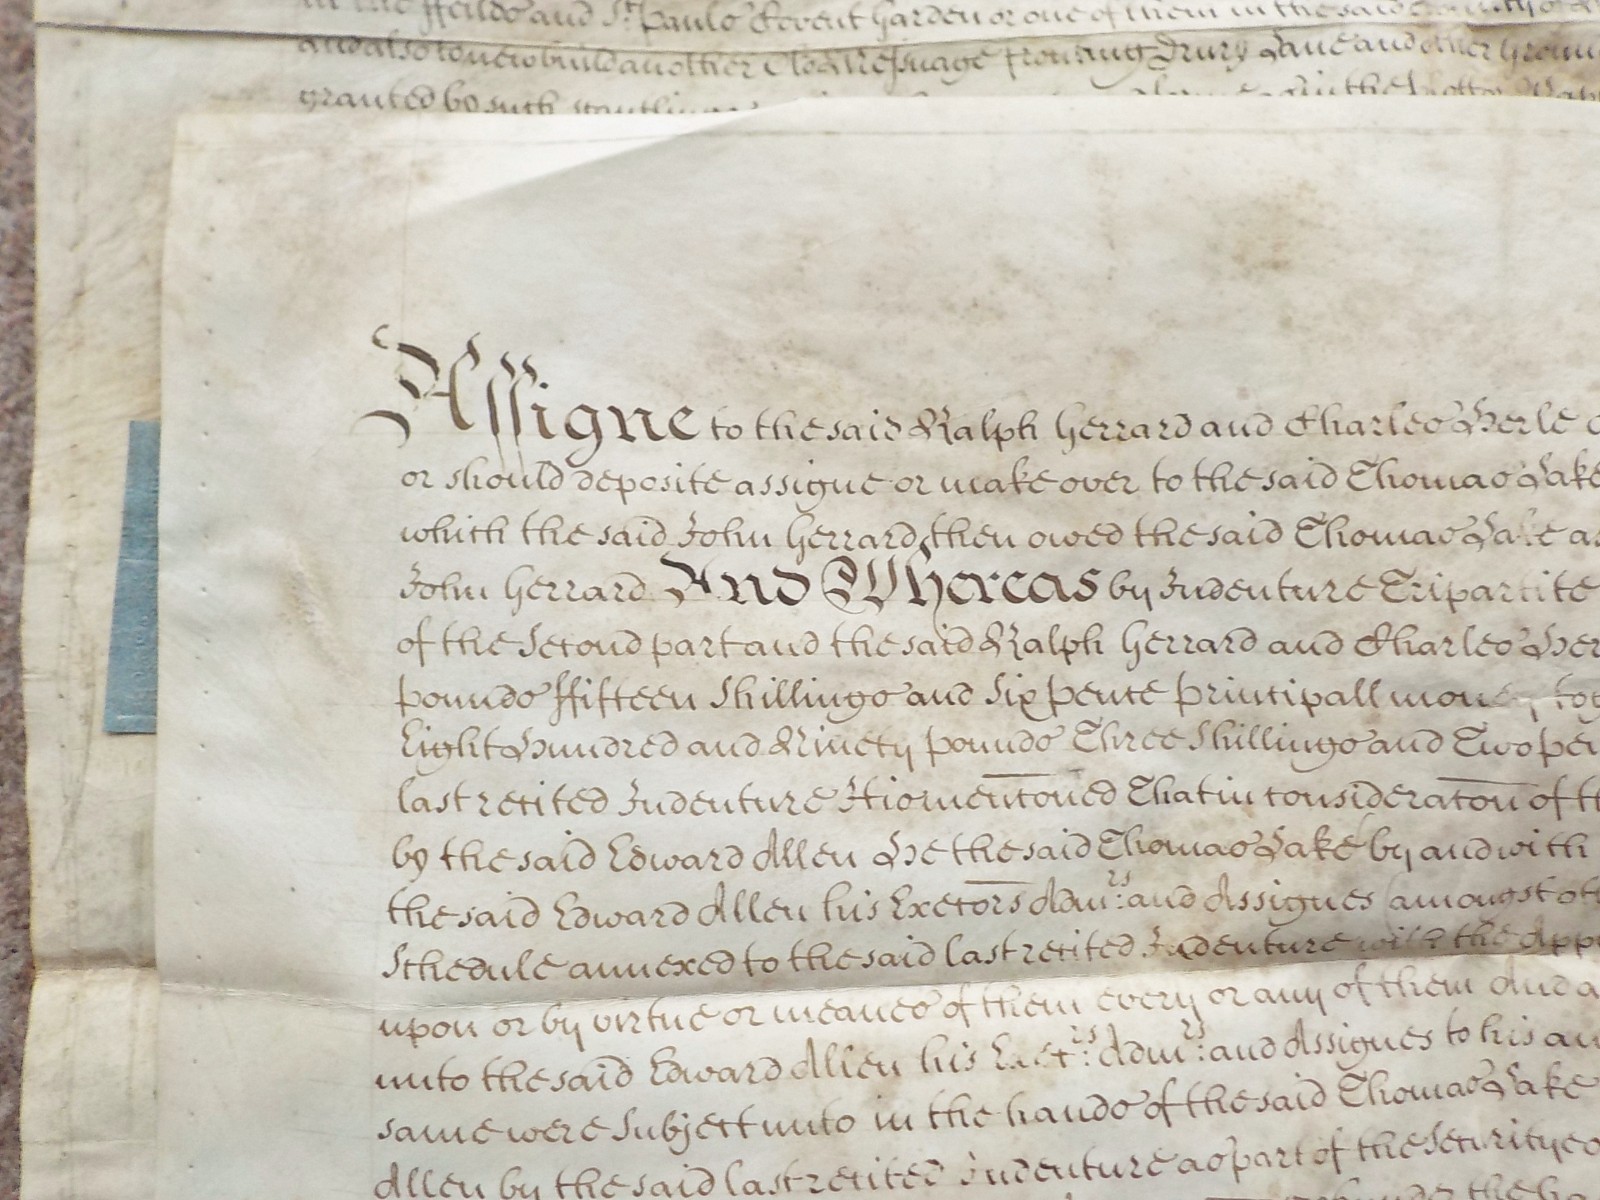 in the ffeilds and St. Pauls Covent Garden or one of them in the said County of
and also to new build another Messuage fronting Drury Lane and other Ground
granted by such
Assigne to the said Ralph Gerrard and Charles Herle
or should deposite assigne or make over to the said Thomas Lake
which the said John Gerrard then owed the said Thomas Lake as
John Gerrard And Whereas by Indenture Tripartite
of the Second part and the said Ralph Gerrard and Charles Her
pounds ffifteen Shillings and Six pence principall money tog
Eight Hundred and Ninety pounds Three Shillings and Two pen
last recited Indenture Itt is mentoned That in consideraton of th
by the said Edward Allen He the said Thomas Lake by and with
the said Edward Allen his Exectors Admrs: and Assignes (amongst oth
Schedule annexed to the said last recited Indenture with the App
upon or by virtue or meanes of them every or any of them And a
unto the said Edward Allen his Exectrs: Admrs: and Assignes to his an
same were Subject unto in the hands of the said Thomas Lake
Allen by the said last recited Indenture as part of the Security